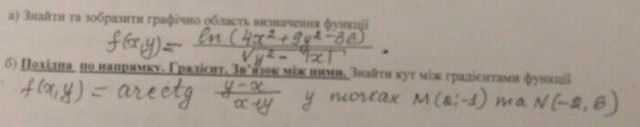 а) Знайти та зобразити графічно область визначення функції
f(x,y) = ln(4x²+9y²-36) / √y²-
б) Похідна по напрямку. Градієнт. Зв'язок між ними. Знайти кут між градієнтами функції
f(x,y) = arcctg (y-x)/(x+y) у точках M(2;-1) та N(-2,6)